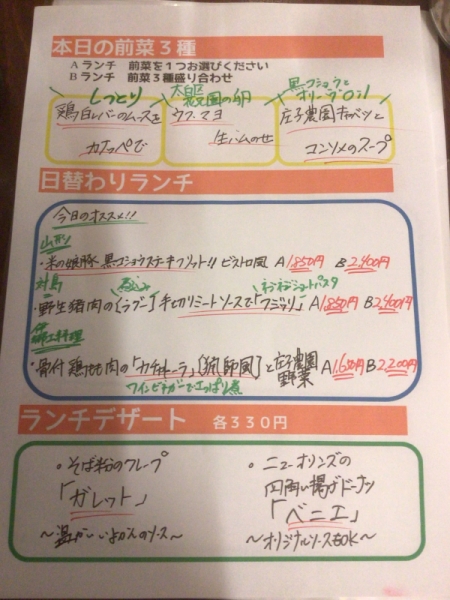 本日の前菜3種
Aランチ 前菜を1つお選びください
Bランチ 前菜3種盛り合わせ
しっとり
鶏白レバーのムースを
カナッペで
大自区
花見園の卵
ウフ・マヨ
生ハムのせ
黒コショウと
オリーブオイル
庄子農園キャベツと
コンソメのスープ
日替わりランチ
今日のオススメ!!
山形
・米の娘豚 黒コショウステーキフリット!! ビストロ風 A1,850円 B2,400円
対馬
煮込み
ネジネジショートパスタ
・野生猪肉の[ラグー]チとカリミートソースで「フジッリ」 A1,850円 B2,400円
郷土料理
・骨付鶏もも肉の「カチャトーラ」[猟師風]と庄子農園野菜 A1,650円 B2,200円
ワインビネガーでさっぱり煮
ランチデザート 各330円
・そば粉のクレープ
「ガレット」
〜温かいいよかんのソース〜
・ニューオリンズの
四角い揚げドーナツ
「ベニエ」
〜オリジナルソースもOK〜